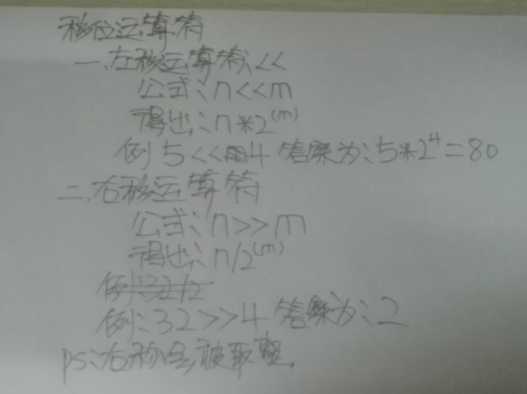 移位运算符
一.左移运算符:<<
公式:n<<m
得出:n*2^(m)
例 5<<4 答案为:5*2^4=80
二.右移运算符
公式:n>>m
得出:n/2^(m)
例:32/2
例:32>>4 答案为:2
ps:右移会被取整.